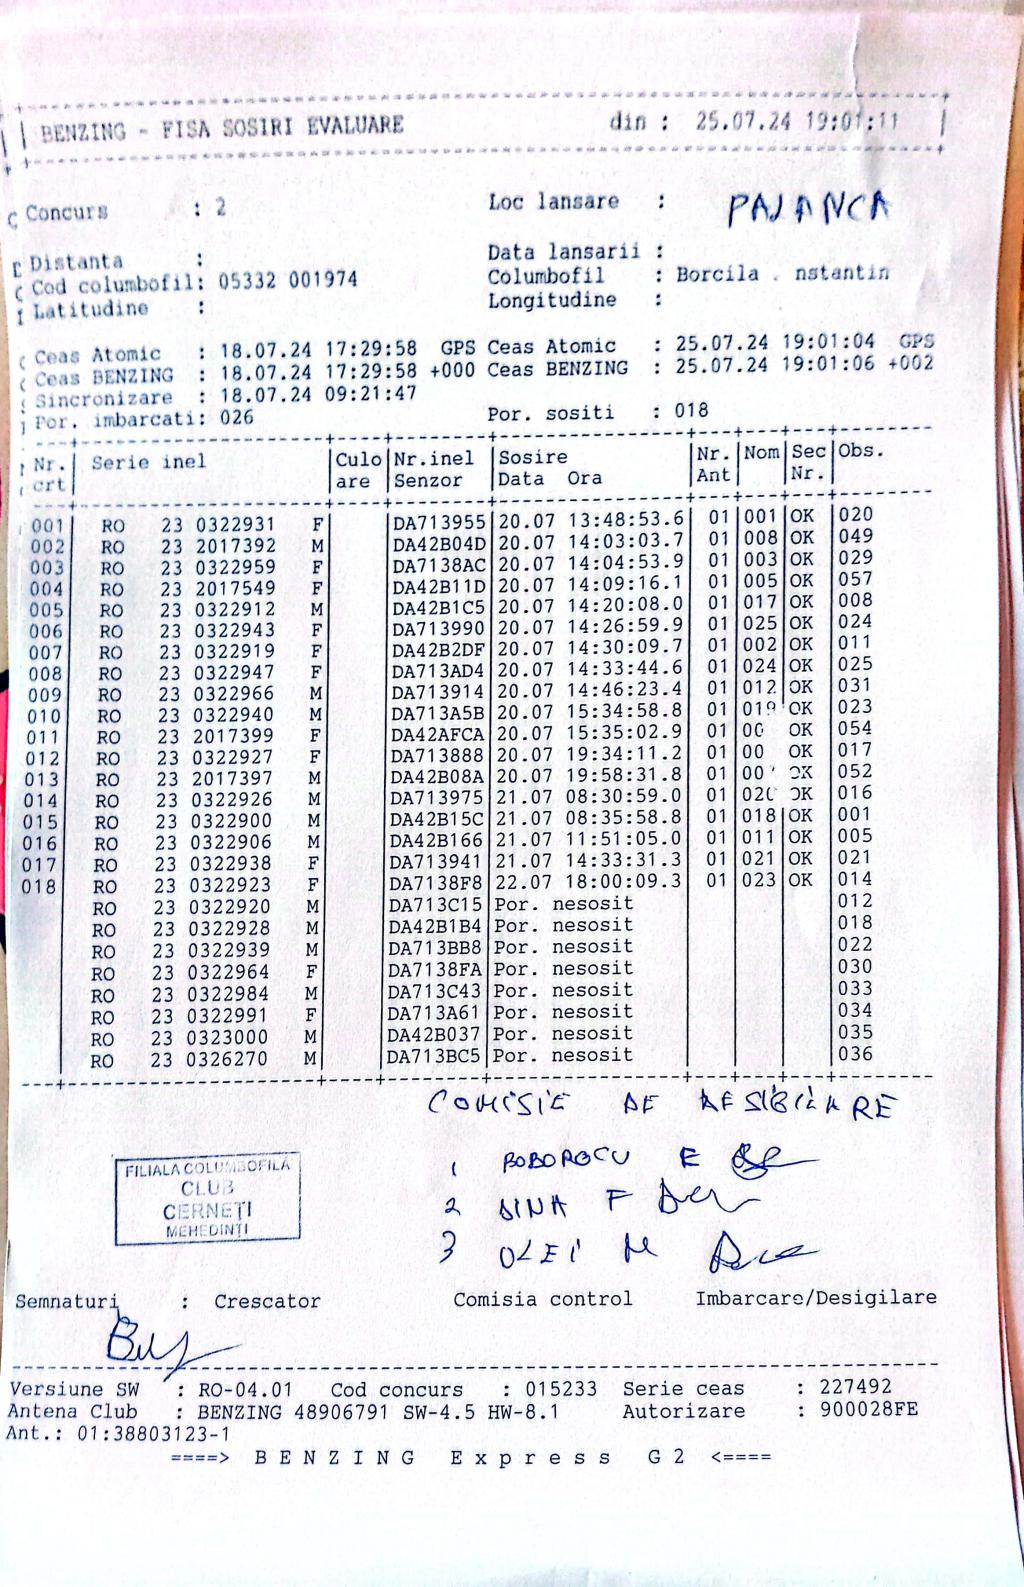 BENZING - FISA SOSIRI EVALUARE din : 25.07.24 19:01:11
Concurs : 2 Loc lansare : PAJANCA
Distanta : Data lansarii :
Cod columbofil: 05332 001974 Columbofil : Borcila . nstantin
Latitudine : Longitudine :
Ceas Atomic : 18.07.24 17:29:58 GPS Ceas Atomic : 25.07.24 19:01:04 GPS
Ceas BENZING : 18.07.24 17:29:58 +000 Ceas BENZING : 25.07.24 19:01:06 +002
Sincronizare : 18.07.24 09:21:47
Por. imbarcati: 026 Por. sositi : 018
Nr. Serie inel Culo Nr.inel Sosire Nr. Nom Sec Obs.
crt are Senzor Data Ora Ant Nr.
001 RO 23 0322931 F DA713955 20.07 13:48:53.6 01 001 OK 020
002 RO 23 2017392 M DA42B04D 20.07 14:03:03.7 01 008 OK 049
003 RO 23 0322959 F DA7138AC 20.07 14:04:53.9 01 003 OK 029
004 RO 23 2017549 F DA42B11D 20.07 14:09:16.1 01 005 OK 057
005 RO 23 0322912 M DA42B1C5 20.07 14:20:08.0 01 017 OK 008
006 RO 23 0322943 F DA713990 20.07 14:26:59.9 01 025 OK 024
007 RO 23 0322919 F DA42B2DF 20.07 14:30:09.7 01 002 OK 011
008 RO 23 0322947 F DA713AD4 20.07 14:33:44.6 01 024 OK 025
009 RO 23 0322966 M DA713914 20.07 14:46:23.4 01 012 OK 031
010 RO 23 0322940 M DA713A5B 20.07 15:34:58.8 01 019 OK 023
011 RO 23 2017399 F DA42AFCA 20.07 15:35:02.9 01 OK 054
012 RO 23 0322927 F DA713888 20.07 19:34:11.2 01 OK 017
013 RO 23 2017397 M DA42B08A 20.07 19:58:31.8 01 OK 052
014 RO 23 0322926 M DA713975 21.07 08:30:59.0 01 020 OK 016
015 RO 23 0322900 M DA42B15C 21.07 08:35:58.8 01 018 OK 001
016 RO 23 0322906 M DA42B166 21.07 11:51:05.0 01 011 OK 005
017 RO 23 0322938 F DA713941 21.07 14:33:31.3 01 021 OK 021
018 RO 23 0322923 F DA7138F8 22.07 18:00:09.3 01 023 OK 014
RO 23 0322920 M DA713C15 Por. nesosit 012
RO 23 0322928 M DA42B1B4 Por. nesosit 018
RO 23 0322939 M DA713BB8 Por. nesosit 022
RO 23 0322964 F DA7138FA Por. nesosit 030
RO 23 0322984 M DA713C43 Por. nesosit 033
RO 23 0322991 F DA713A61 Por. nesosit 034
RO 23 0323000 M DA42B037 Por. nesosit 035
RO 23 0326270 M DA713BC5 Por. nesosit 036
COMISIE DE DESIGILARE
1 BOBOROCU E
2 DINA F
3 OLEI M
FILIALA COLUMBOFILĂ
CLUB
CERNEȚI
MEHEDINȚI
Semnaturi : Crescator Comisia control Imbarcare/Desigilare
Versiune SW : RO-04.01 Cod concurs : 015233 Serie ceas : 227492
Antena Club : BENZING 48906791 SW-4.5 HW-8.1 Autorizare : 900028FE
Ant.: 01:38803123-1
====> B E N Z I N G E x p r e s s G 2 <====